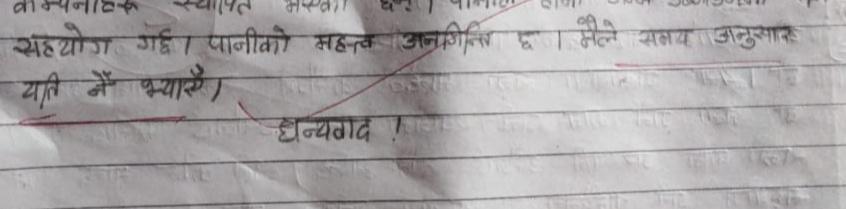 कम्पनीहरू स्थापित भएका छन् । पानीले
सहयोग गर्छ । पानीको महत्व अनगिन्ति छ । मैले समय अनुसार
यति नै भ्याएँ ।
धन्यवाद !